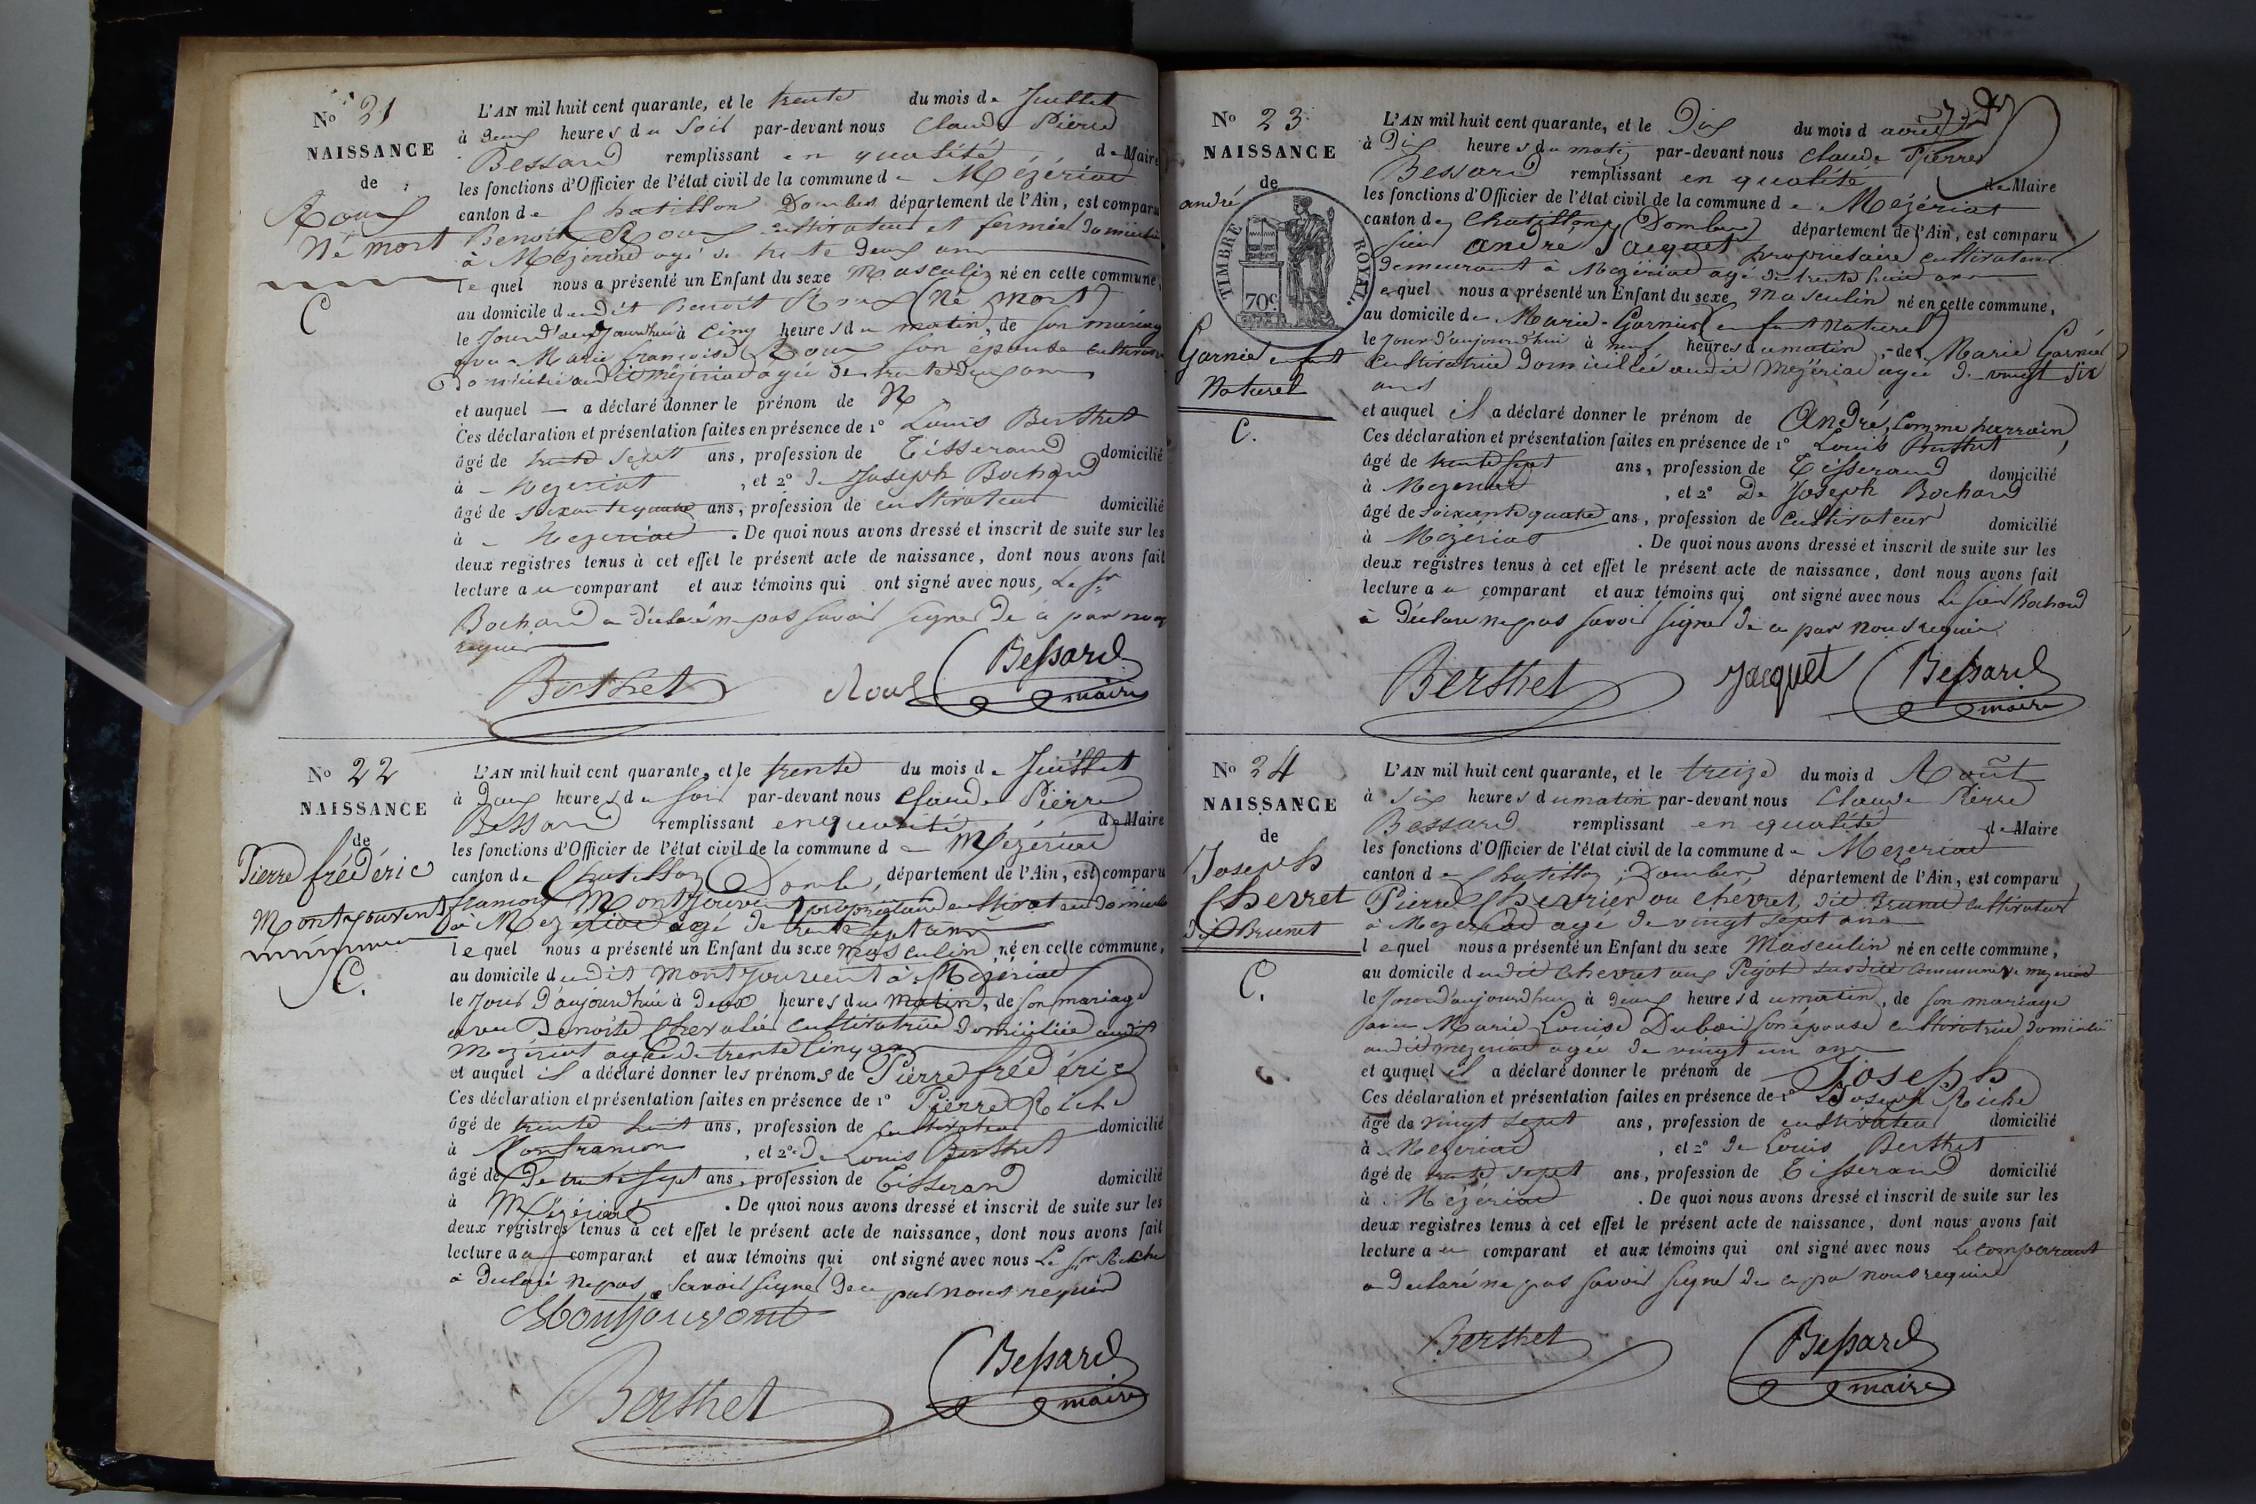 N° 21
NAISSANCE
de
Roux
Né mort
C
L'AN mil huit cent quarante, et le trente du mois de Juillet
à deux heures du soir par-devant nous Claude Pierre
Bessard remplissant en qualité de Maire
les fonctions d'Officier de l'état civil de la commune de Mézériat
canton de Chatillon Dombes département de l'Ain, est comparu
Benoit Roux cultivateur et fermier domicilié
à Mézériat agé de trente deux ans
lequel nous a présenté un Enfant du sexe Masculin né en cette commune,
au domicile dudit Benoit Roux (Né mort)
le jour d'aujourd'hui à cinq heures du matin, de son mariage
avec Marie françoise Roux son épouse cultivatrice
domiciliée audit Mézériat agée de trente deux ans
et auquel — a déclaré donner le prénom de N
Ces déclaration et présentation faites en présence de 1° Louis Berthet
âgé de trente sept ans, profession de Tisserand domicilié
à Mézériat, et 2° de Joseph Bochard
âgé de soixante quatre ans, profession de cultivateur domicilié
à Mézériat. De quoi nous avons dressé et inscrit de suite sur les
deux registres tenus à cet effet le présent acte de naissance, dont nous avons fait
lecture au comparant et aux témoins qui ont signé avec nous, Le Sr
Bochard a déclaré ne pas savoir signer de ce par nous
requis
Berthet Roux Bessard
maire
N° 22
NAISSANCE
de
Pierre frédéric
Montjouvent
C.
L'AN mil huit cent quarante, et le trente du mois de Juillet
à Deux heures du soir par-devant nous Claude Pierre
Bessard remplissant en qualité de Maire
les fonctions d'Officier de l'état civil de la commune de Mézériat
canton de Chatillon Dombes, département de l'Ain, est comparu
françois Montjouvent propriétaire cultivateur domicilié
à Mézériat agé de trente sept ans
lequel nous a présenté un Enfant du sexe masculin, né en cette commune,
au domicile dudit Montjouvent à Mézériat
le jour d'aujourdhui à deux heures du matin, de son mariage
avec Benoite Chevalier cultivatrice domiciliée audit
Mézériat agée de trente cinq ans
et auquel il a déclaré donner les prénoms de Pierre frédéric
Ces déclaration et présentation faites en présence de 1° Pierre Riche
âgé de trente huit ans, profession de cultivateur domicilié
à Montfrancon, et 2° de Louis Berthet
âgé de De trente sept ans, profession de Tisserand domicilié
à Mézériat. De quoi nous avons dressé et inscrit de suite sur les
deux registres tenus à cet effet le présent acte de naissance, dont nous avons fait
lecture au comparant et aux témoins qui ont signé avec nous Le Sr Riche
a déclaré ne pas savoir signer de ce par nous requis
Montjouvent
Berthet Bessard
maire
N° 23
NAISSANCE
de
andré
TIMBRE ROYAL.
70c
Garnier enfant
Naturel
C.
L'AN mil huit cent quarante, et le Dix du mois d'avril
à Dix heures du matin par-devant nous Claude Pierre
Bessard remplissant en qualité de Maire
les fonctions d'Officier de l'état civil de la commune de Mézériat
canton de Chatillon (Dombes) département de l'Ain, est comparu
sieur andré Jacquet propriétaire cultivateur
demeurant à Mézériat agé de trente huit ans
lequel nous a présenté un Enfant du sexe Masculin né en cette commune,
au domicile de Marie Garnier (enfant Naturel)
le jour d'aujourdhui à neuf heures du matin, de Marie Garnier
cultivatrice domiciliée audit Mézériat agée de vingt six
ans
et auquel il a déclaré donner le prénom de André, comme parrain,
Ces déclaration et présentation faites en présence de 1° Louis Berthet
âgé de trente sept ans, profession de Tisserand domicilié
à Mézériat, et 2° De Joseph Bochard
âgé de soixante quatre ans, profession de cultivateur domicilié
à Mézériat. De quoi nous avons dressé et inscrit de suite sur les
deux registres tenus à cet effet le présent acte de naissance, dont nous avons fait
lecture au comparant et aux témoins qui ont signé avec nous Le sieur Bochard
à déclaré ne pas savoir signer de ce par nous requis
Berthet Jacquet Bessard
maire
N° 24
NAISSANCE
de
Joseph
Chevret
dit Brunet
C.
L'AN mil huit cent quarante, et le treize du mois d'Août
à six heures du matin par-devant nous Claude Pierre
Bessard remplissant en qualité de Maire
les fonctions d'Officier de l'état civil de la commune de Mézériat
canton de Chatillon, Dombes, département de l'Ain, est comparu
Pierre Chevrier ou Chevret, dit Brunet cultivateur
à Mézériat agé de vingt sept ans
lequel nous a présenté un Enfant du sexe Masculin né en cette commune,
au domicile dudit Chevret aux susdite commune de mézériat
le jour d'aujourdhui à deux heures du matin, de son mariage
avec Marie Louise son épouse cultivatrice domiciliée
audit mézériat agée de vingt un ans
et auquel il a déclaré donner le prénom de Joseph
Ces déclaration et présentation faites en présence de 1° Joseph Riche
âgé de vingt sept ans, profession de cultivateur domicilié
à Mézériat, et 2° de Louis Berthet
âgé de trente sept ans, profession de Tisserand domicilié
à Mézériat. De quoi nous avons dressé et inscrit de suite sur les
deux registres tenus à cet effet le présent acte de naissance, dont nous avons fait
lecture au comparant et aux témoins qui ont signé avec nous Le comparant
a déclaré ne pas savoir signer de ce par nous requis
Berthet Bessard
maire